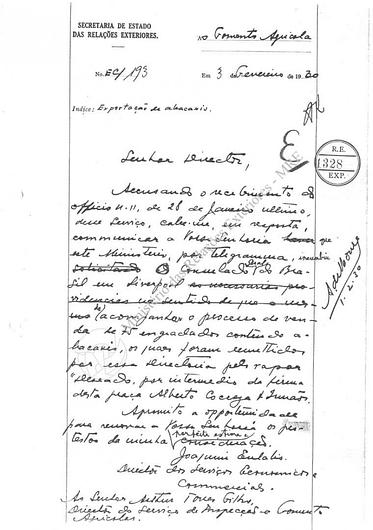 SECRETARIA DE ESTADO
DAS RELAÇÕES EXTERIORES.
Ao Fomento Agricola
No. EC/193
Em 3 de Fevereiro de 1930
Indice: Exportação de abacaxis.
E
R.E.
1328
EXP.
Senhor Director,
Accusando o recebimento do
officio N. 11, de 28 de Janeiro ultimo,
desse Serviço, cabe-me, em resposta,
communicar a Vossa Senhoria que
este Ministerio, por telegramma,
solicitado o Consulado do Bra-
sil em Liverpool as necessarias pro-
videncias no sentido de que o mes-
mo acompanhar o processo de ven-
da de 75 engradados contendo a-
bacaxis, os quaes foram remettidos
por essa Directoria pelo vapor
"Deseado", por intermedio da firma
desta praça Alberto Cocozza & Irmãos.
Aproveito a opportunidade
para renovar a Vossa Senhoria os pro-
testos da minha perfeita estima e consideração.
Joaquim Eulalio
Director dos Serviços Economicos e
Commerciaes.
Ao Senhor Arthur Torres Filho,
Director do Serviço de Inspecção e Fomento
Agricolas.
Relações Exteriores - MRE